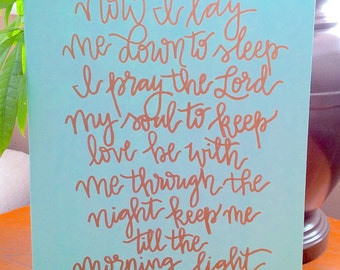 Now I lay
me down to sleep
I pray the Lord
my soul to keep
love be with
me through the
night keep me
till the
morning light